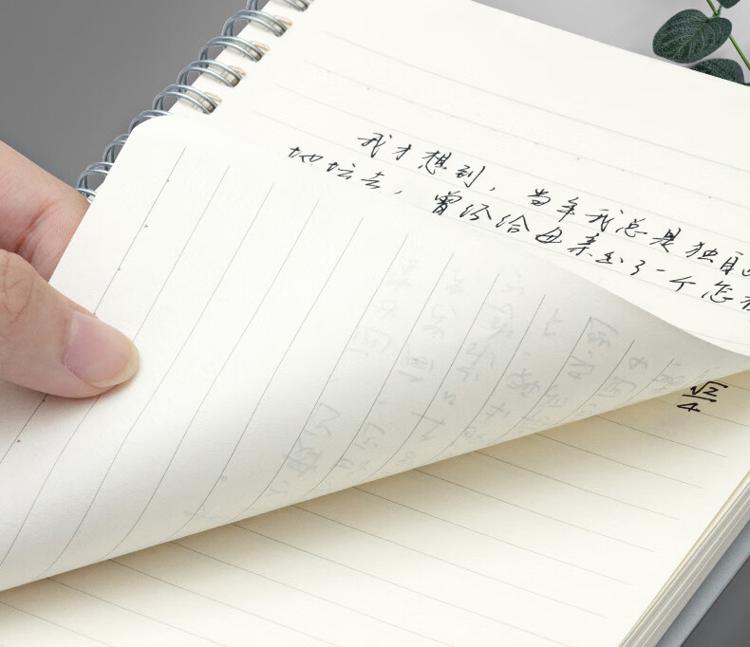 我才想到，当年我总是独自
地坛去，曾经给母亲出了一个怎
√2/4